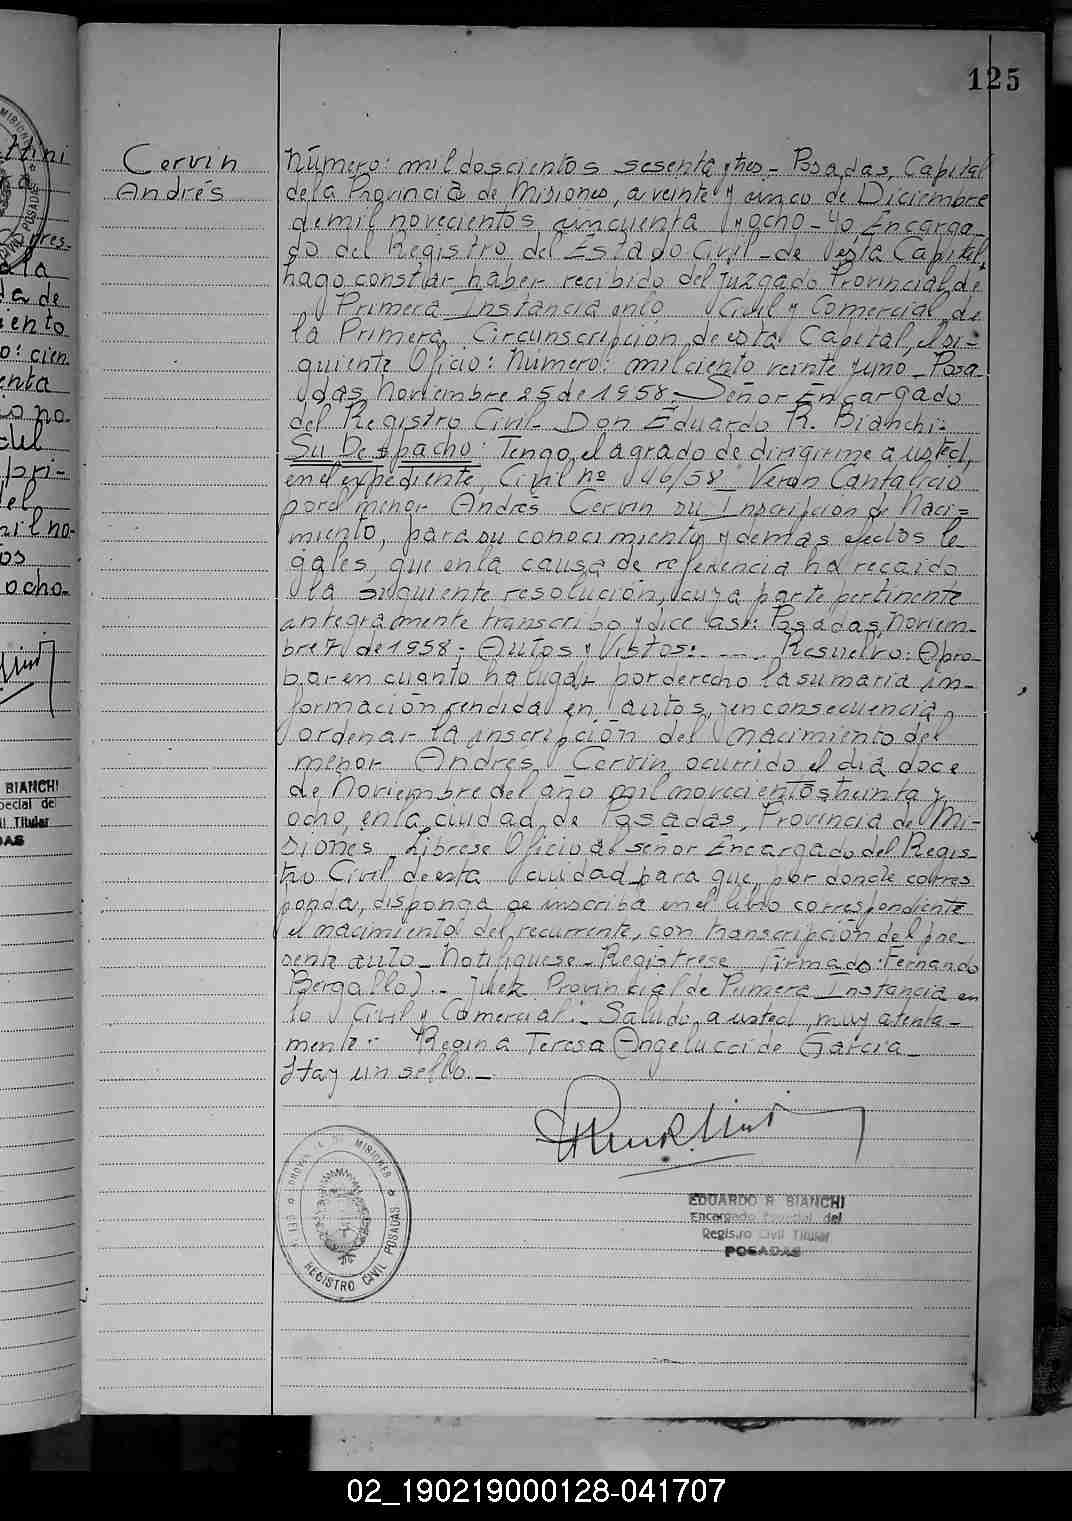 125
Cervin
Andrés
Número: mil doscientos sesenta y tres - Posadas, Capital
de la Provincia de Misiones, a veinte y cinco de Diciembre
de mil novecientos cincuenta y ocho - Yo Encarga-
do del Registro del Estado Civil - de esta Capital,
hago constar haber recibido del Juzgado Provincial de
Primera Instancia en lo Civil y Comercial de
la Primera Circunscripción de esta Capital, el si-
guiente Oficio: Número: mil ciento veinte y uno - Posa-
das, Noviembre 25 de 1958 - Señor Encargado
del Registro Civil - Don Eduardo R. Bianchi:
Su Despacho: Tengo el agrado de dirigirme a usted,
en el expediente, Civil nº 46/58 Veron Cantalicio
por el menor Andrés Cervin su Inscripcion de Naci-
miento, para su conocimiento y demás efectos le-
gales, que en la causa de referencia ha recaido
la siguiente resolución, cuya parte pertinente
integramente transcribo y dice asi: Posadas, Noviem-
bre 7 de 1958 - Autos y Vistos: - - - Resuelvo: Apro-
bar en cuanto ha lugar por derecho la sumaria in-
formación rendida en autos, y en consecuencia
ordenar la inscripción del nacimiento del
menor Andrés Cervin, ocurrido el dia doce
de Noviembre del año mil novecientos treinta y
ocho, en la ciudad de Posadas, Provincia de Mi-
siones - Librese Oficio al señor Encargado del Regis-
tro Civil de esta ciudad para que, por donde corres
ponda, disponga se inscriba en el libro correspondiente
el nacimiento del recurrente, con transcripción del pre-
sente auto - Notifiquese - Registrese Firmado: Fernando
Bergallo). - Juez Provincial de Primera Instancia en
lo Civil y Comercial. - Saludo a usted muy atenta-
mente: Regina Teresa Angelucci de Garcia -
Hay un sello. -
PROVINCIA DE MISIONES
REGISTRO CIVIL POSADAS
EDUARDO R BIANCHI
Encargado Especial del
Registro Civil Titular
POSADAS
BIANCHI
pecial de
il Titular
02_190219000128-041707